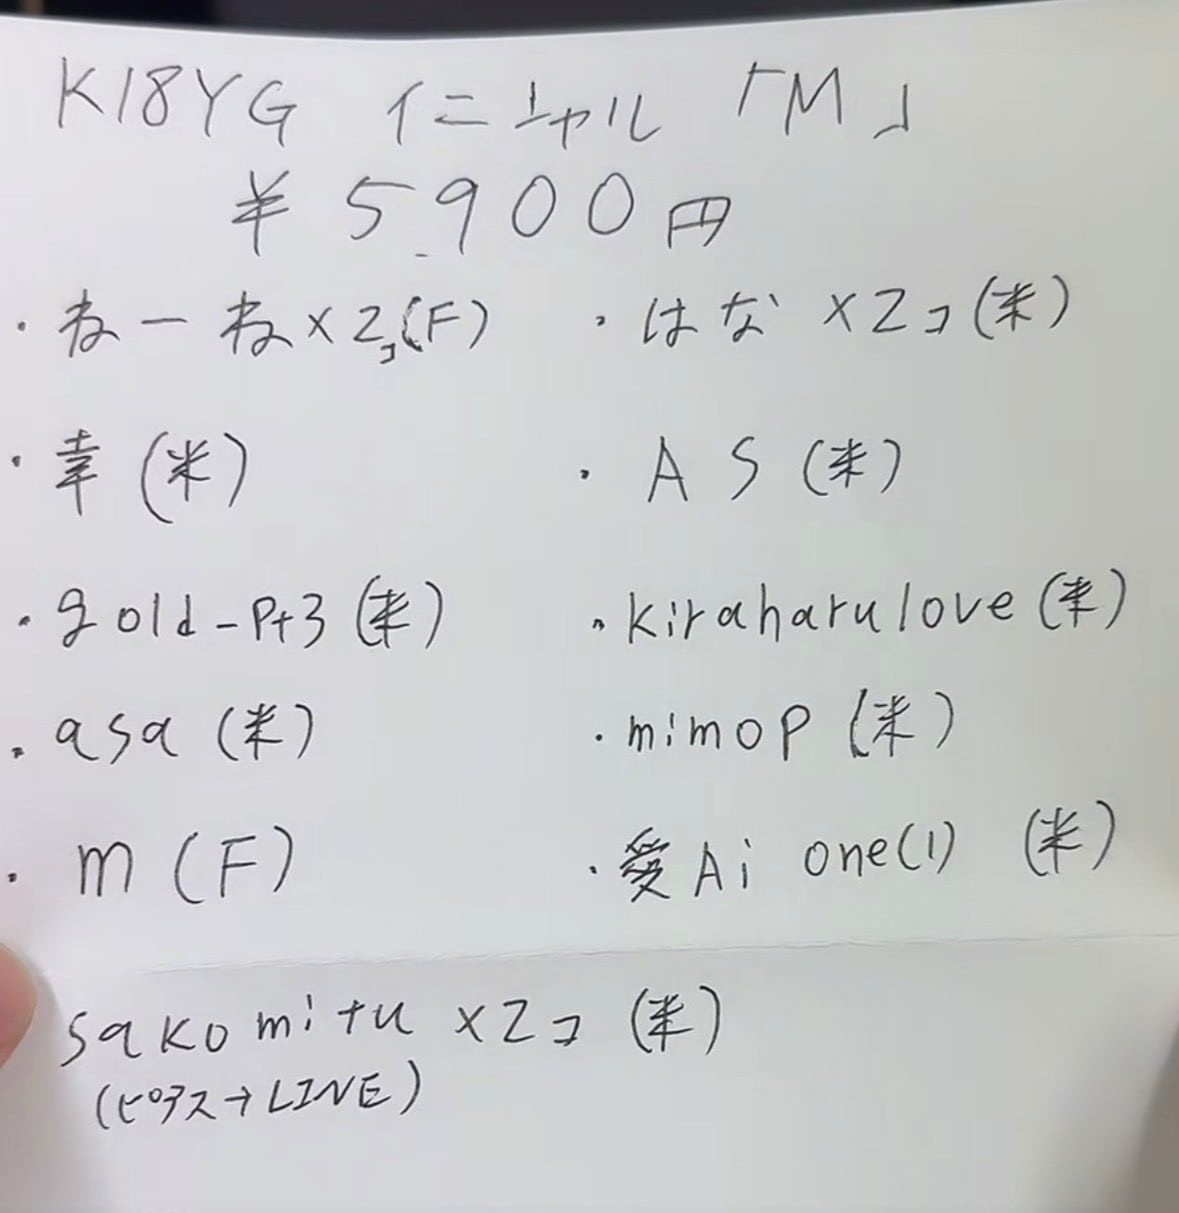 K18YG イニシャル「M」
¥5900円
・ねーね×2コ(F) ・はな×2コ(米)
・幸(米) ・AS(米)
・gold-pt3(米) ・kiraharulove(米)
・asa(米) ・mimop(米)
・m(F) ・愛Ai one(1) (米)
sakomitu×2コ(米)
(ピアス→LINE)